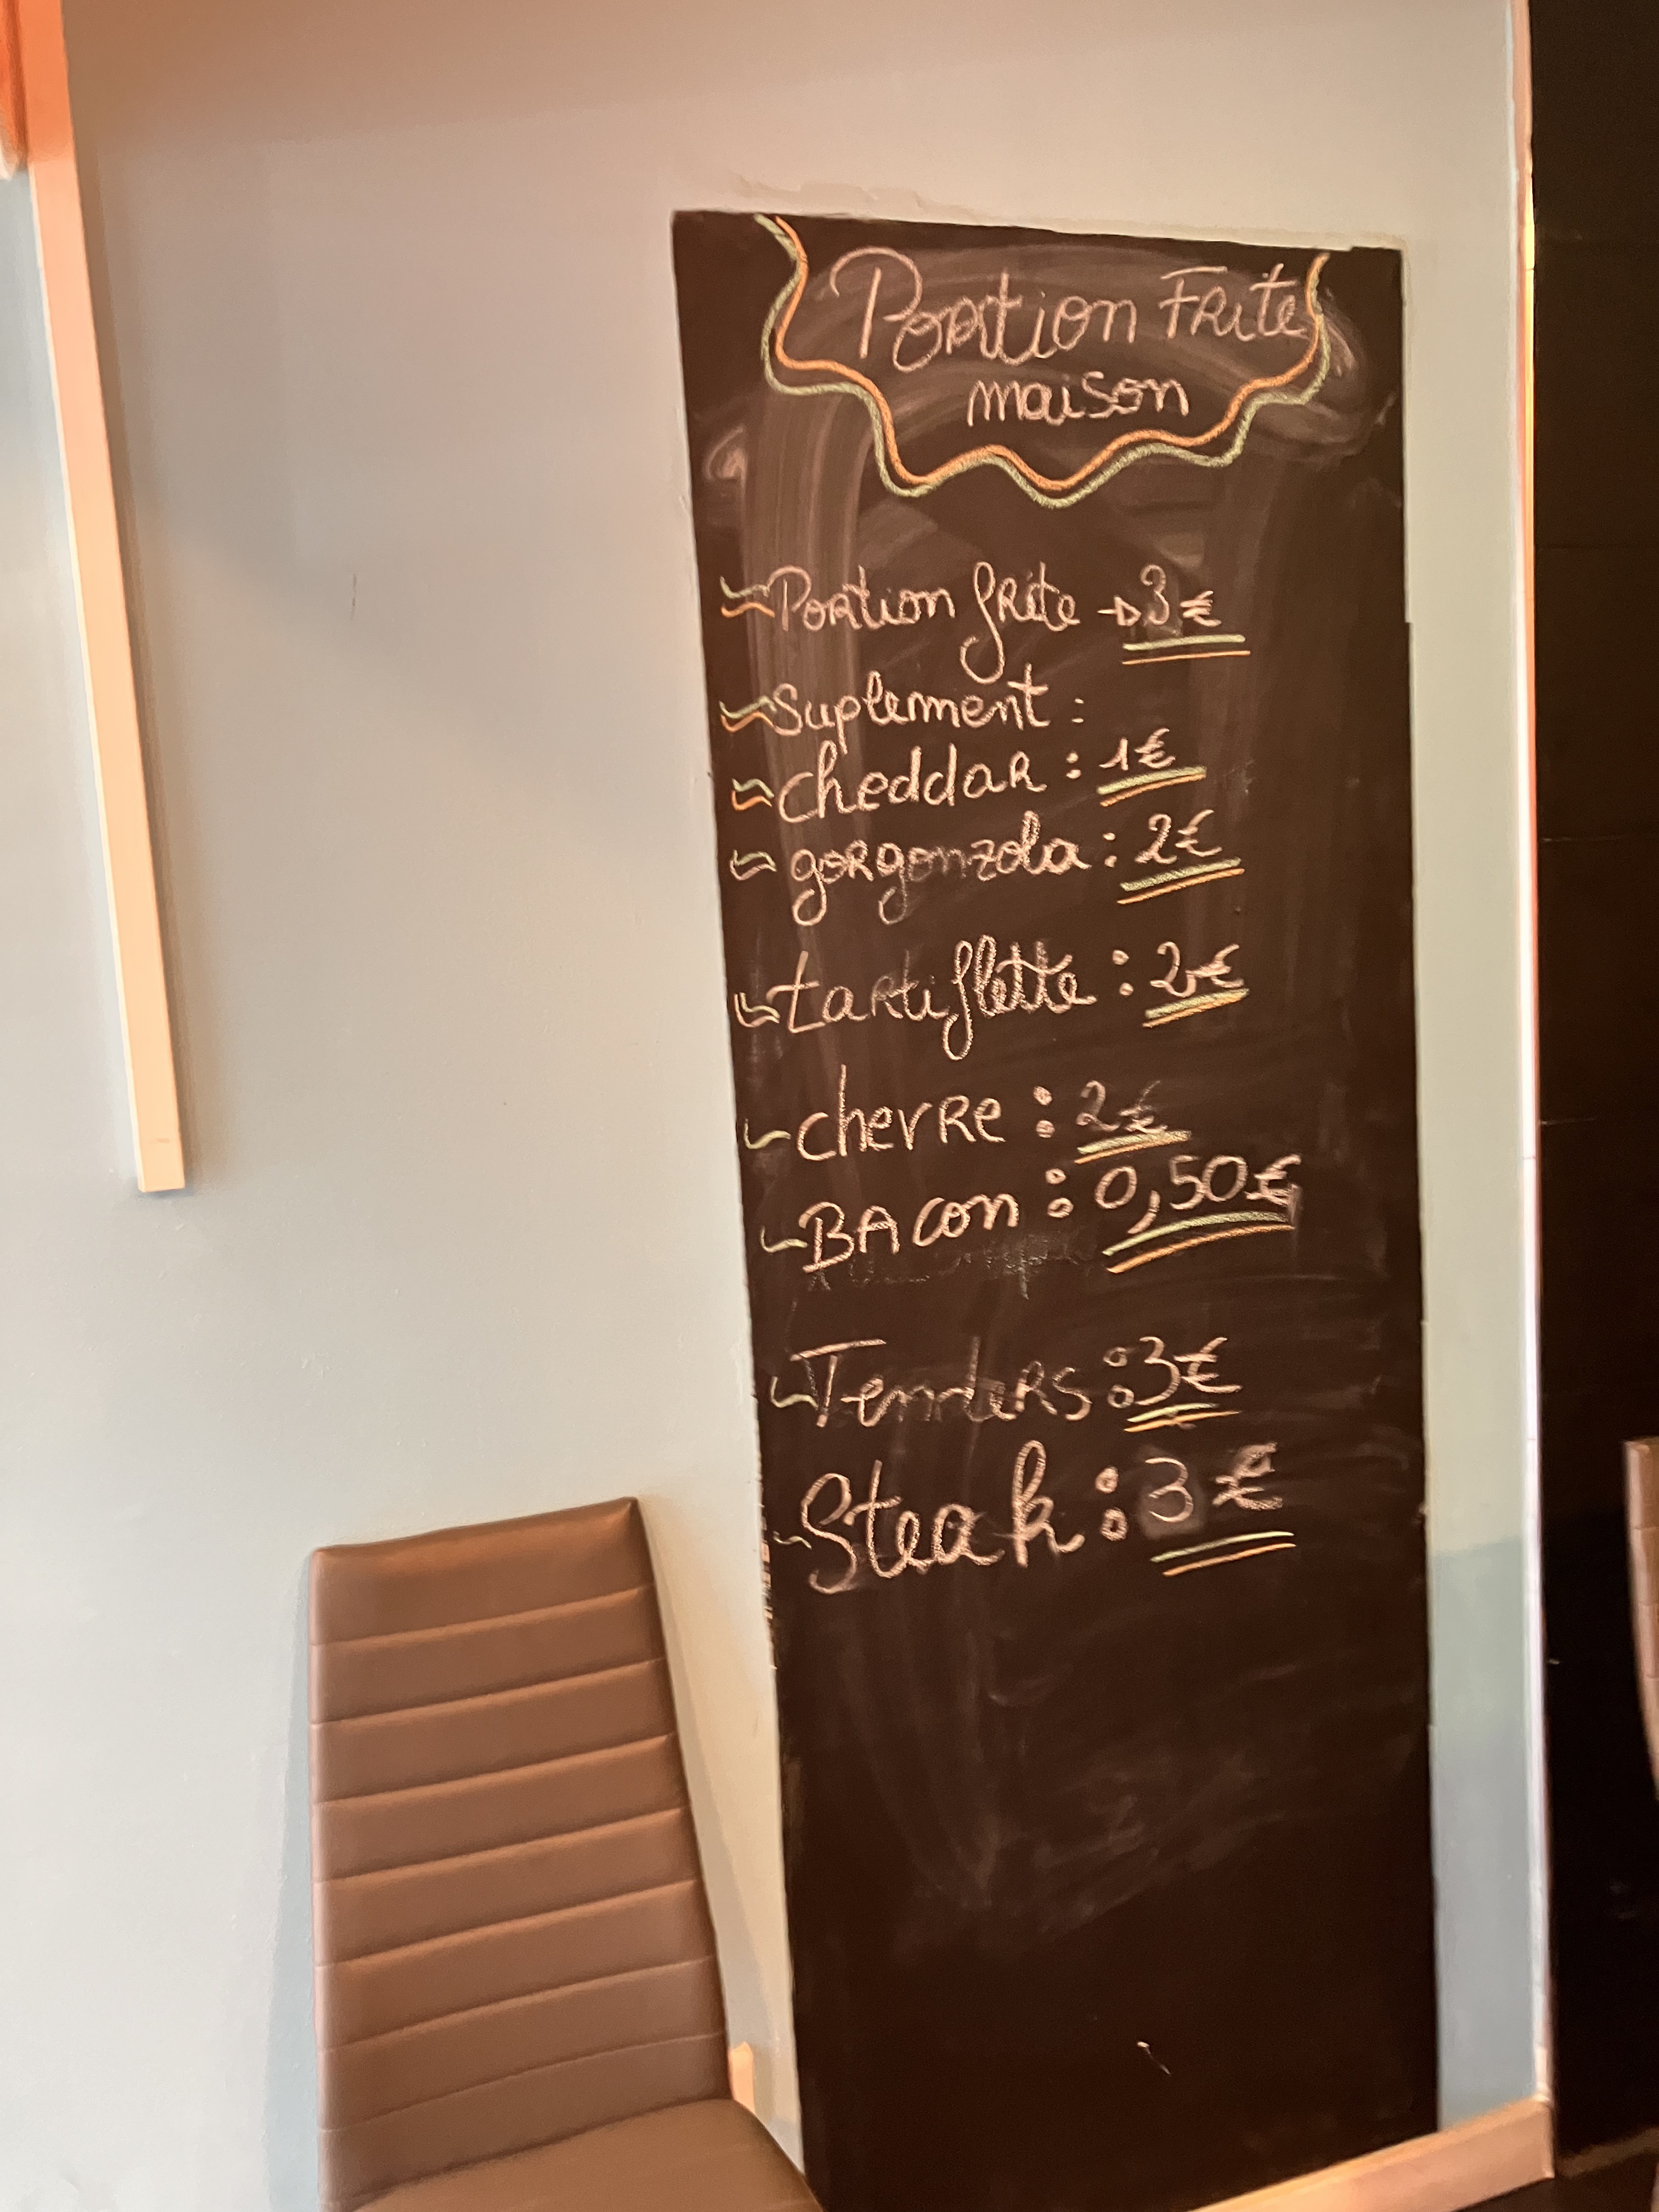 Portion Frite
maison
Portion frite → 3€
Suplement :
cheddar : 1€
gorgonzola : 2€
tartiflette : 2€
chevre : 2€
BAcon : 0,50€
Tenders : 3€
Steak : 3€